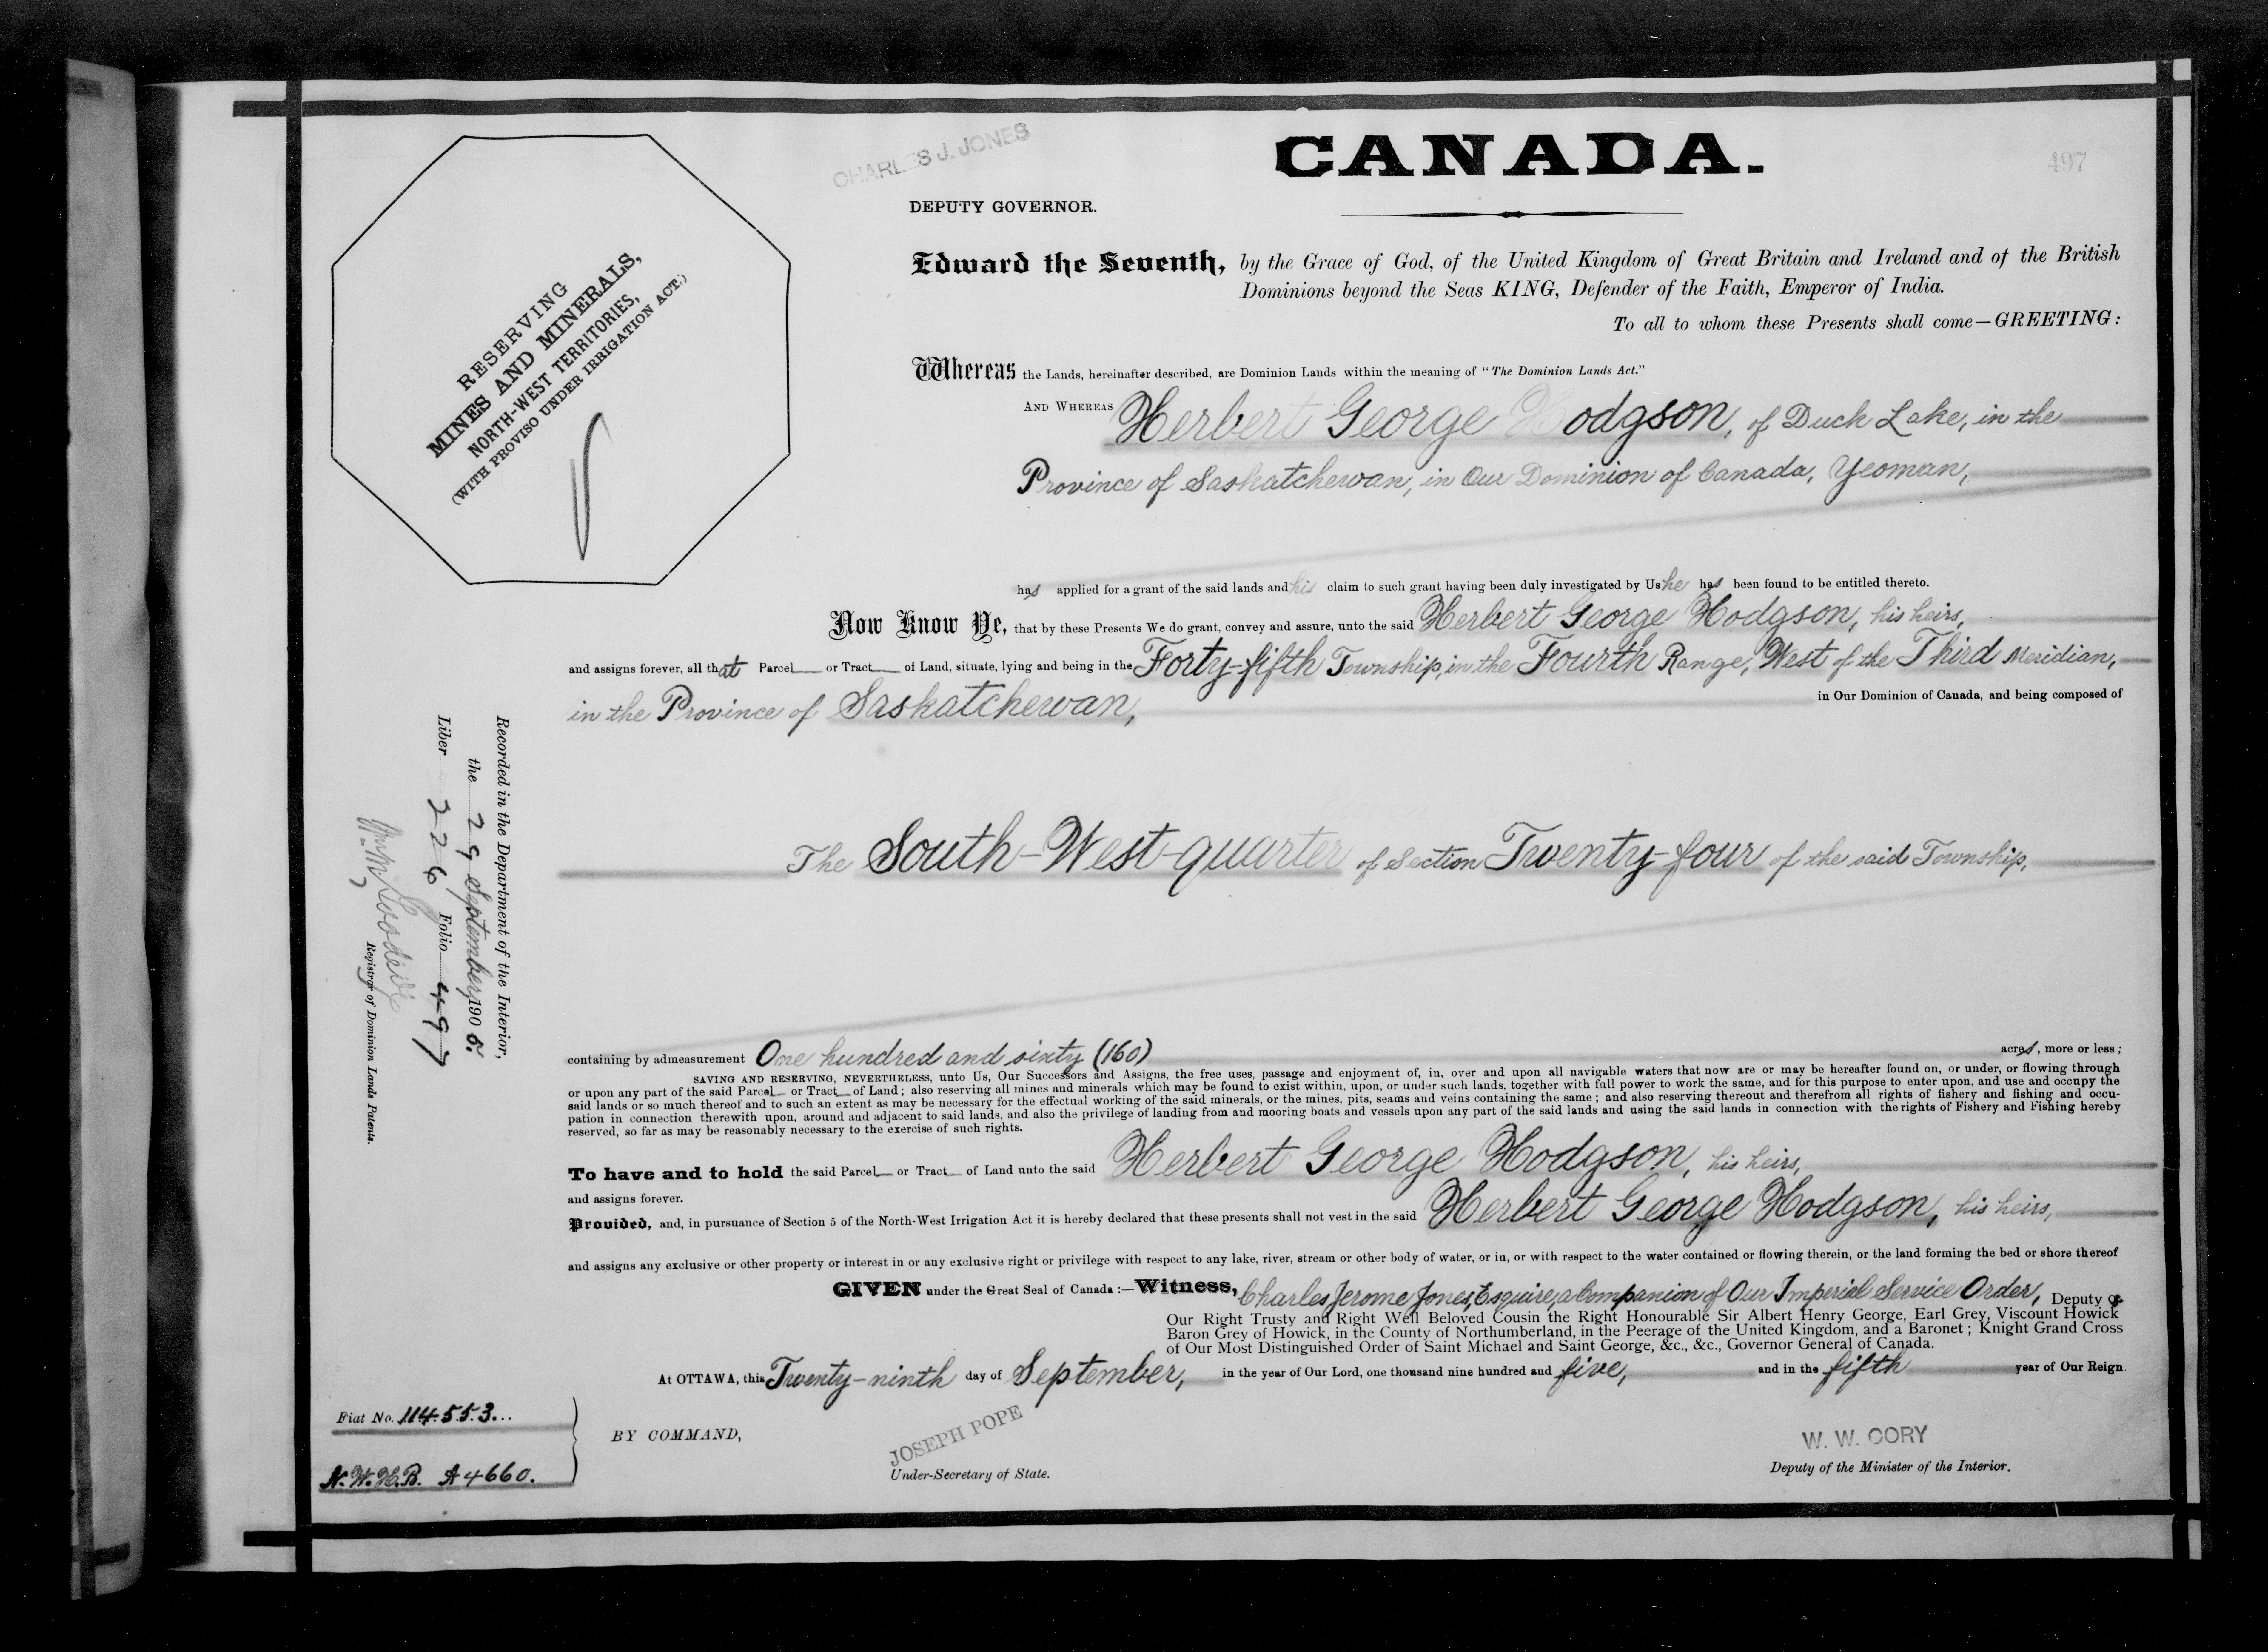 CHARLES J. JONES
CANADA.
497
DEPUTY GOVERNOR.
RESERVING
MINES AND MINERALS,
NORTH-WEST TERRITORIES,
(WITH PROVISO UNDER IRRIGATION ACT.)
Edward the Seventh, by the Grace of God, of the United Kingdom of Great Britain and Ireland and of the British
Dominions beyond the Seas KING, Defender of the Faith, Emperor of India.
To all to whom these Presents shall come—GREETING:
Whereas the Lands, hereinafter described, are Dominion Lands within the meaning of "The Dominion Lands Act."
AND WHEREAS Herbert George Hodgson, of Duck Lake, in the
Province of Saskatchewan, in Our Dominion of Canada, Yeoman,
has applied for a grant of the said lands and his claim to such grant having been duly investigated by Us he has been found to be entitled thereto.
Now Know Ye, that by these Presents We do grant, convey and assure, unto the said Herbert George Hodgson, his heirs,
and assigns forever, all that Parcel or Tract of Land, situate, lying and being in the Forty-fifth Township, in the Fourth Range, West of the Third Meridian,
in the Province of Saskatchewan, in Our Dominion of Canada, and being composed of
The South-West-quarter of Section Twenty-four of the said Township,
containing by admeasurement One hundred and sixty (160) acres, more or less;
SAVING AND RESERVING, NEVERTHELESS, unto Us, Our Successors and Assigns, the free uses, passage and enjoyment of, in, over and upon all navigable waters that now are or may be hereafter found on, or under, or flowing through
or upon any part of the said Parcel or Tract of Land; also reserving all mines and minerals which may be found to exist within, upon, or under such lands, together with full power to work the same, and for this purpose to enter upon, and use and occupy the
said lands or so much thereof and to such an extent as may be necessary for the effectual working of the said minerals, or the mines, pits, seams and veins containing the same; and also reserving thereout and therefrom all rights of fishery and fishing and occu-
pation in connection therewith upon, around and adjacent to said lands, and also the privilege of landing from and mooring boats and vessels upon any part of the said lands and using the said lands in connection with the rights of Fishery and Fishing hereby
reserved, so far as may be reasonably necessary to the exercise of such rights.
To have and to hold the said Parcel or Tract of Land unto the said Herbert George Hodgson, his heirs,
and assigns forever.
Provided, and, in pursuance of Section 5 of the North-West Irrigation Act it is hereby declared that these presents shall not vest in the said Herbert George Hodgson, his heirs,
and assigns any exclusive or other property or interest in or any exclusive right or privilege with respect to any lake, river, stream or other body of water, or in, or with respect to the water contained or flowing therein, or the land forming the bed or shore thereof
GIVEN under the Great Seal of Canada:—Witness, Charles Jerome Jones, Esquire, a Companion of Our Imperial Service Order, Deputy of
Our Right Trusty and Right Well Beloved Cousin the Right Honourable Sir Albert Henry George, Earl Grey, Viscount Howick
Baron Grey of Howick, in the County of Northumberland, in the Peerage of the United Kingdom, and a Baronet; Knight Grand Cross
of Our Most Distinguished Order of Saint Michael and Saint George, &c., &c., Governor General of Canada.
At OTTAWA, this Twenty-ninth day of September, in the year of Our Lord, one thousand nine hundred and five, and in the fifth year of Our Reign.
Fiat No. 114553...
N.W.H.B. A4660.
BY COMMAND,
JOSEPH POPE
Under-Secretary of State.
W. W. CORY
Deputy of the Minister of the Interior.
Recorded in the Department of the Interior,
the 29 September, 1905.
Liber 226 Folio 497
Registrar of Dominion Lands Patents.